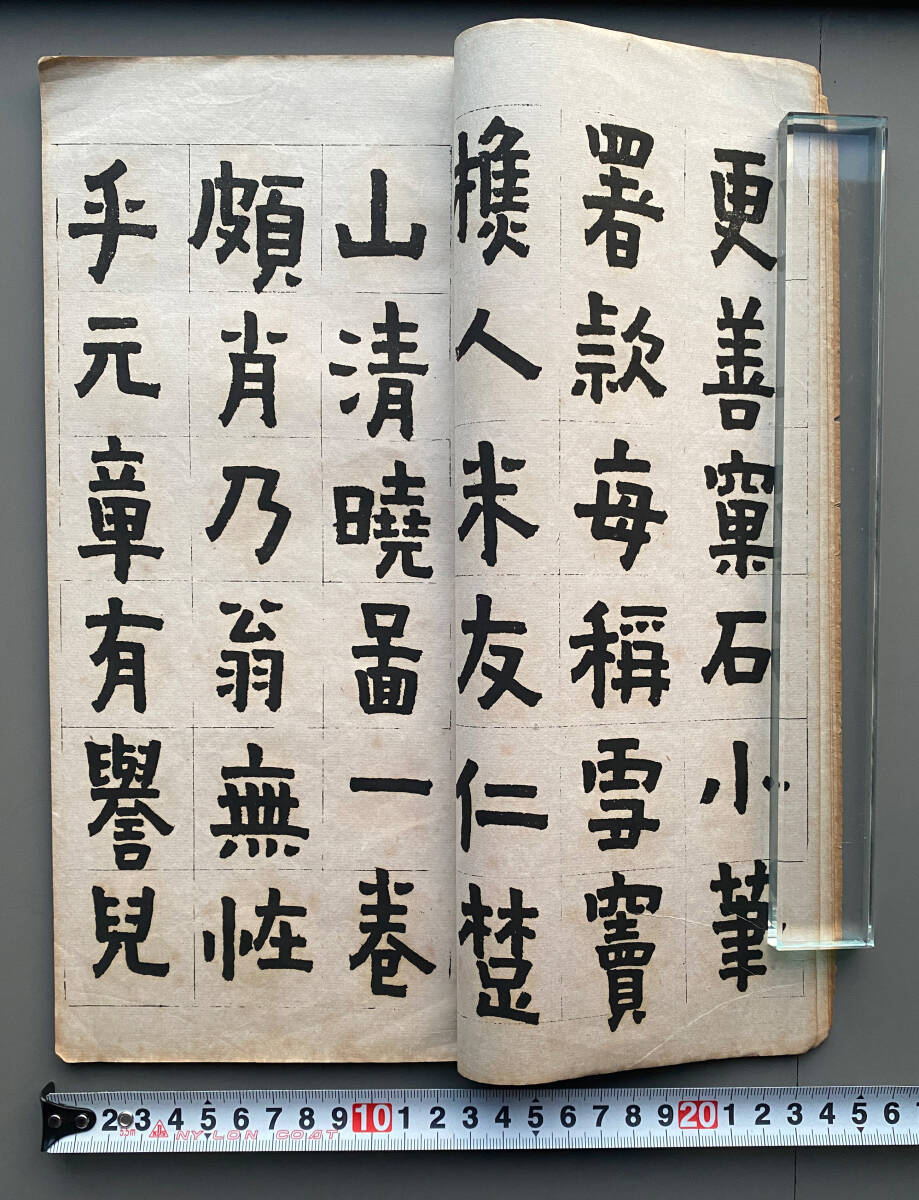 更善窠石小筆
署款每稱雪竇
樵人米友仁楚
山清曉啚一卷
頗肖乃翁無怪
乎元章有譽兒
2 3 4 5 6 7 8 9 10 1 2 3 4 5 6 7 8 9 20 1 2 3 4 5 6
5.5m NYLON COAT